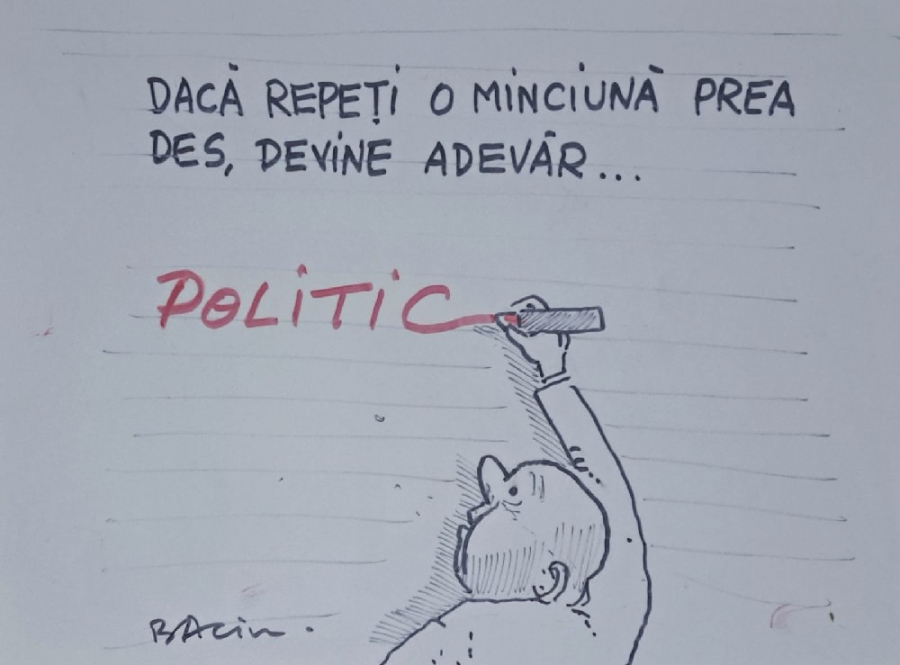 DACĂ REPEȚI O MINCIUNĂ PREA
DES, DEVINE ADEVĂR...
POLITIC
BACiu.